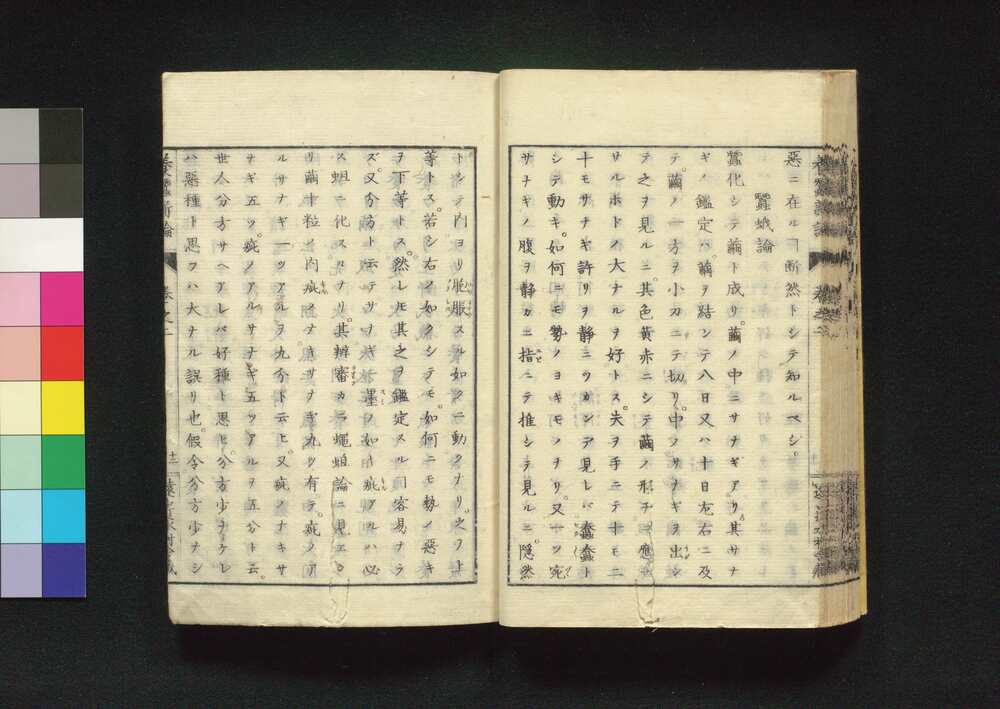 惡ニ在ルヿ断然トシテ知ルベシ。
蠶蛾論
蠶化シテ繭ト成リ。繭ノ中ニサナギアリ其サナ
ギノ鑑定ハ。繭ヲ結ンテ八日又ハ十日左右ニ及
テ。繭ノ一方ヲ小刀ニテ切リ。中ノサナギヲ出シ
テ之ヲ見ルニ。其色黄赤ニシテ繭ノ形チニ應せ
サルホドノ大ナルヲ好トス。夫ヲ手ニテ十モ二
十モサナギ許リヲ静ニツカンデ見レバ蠢蠢ト
シテ動キ。如何ニモ勢ノヨキモノナリ。又一ツ宛
サナギノ腹ヲ静カニ指ニテ推シテ見ルニ。隠然
トシテ内ヨリ脹スル如クニ動クナリ。之ヲ上
等トス。若シ右ノ如クシテモ。如何ニモ勢ノ惡キ
ヲ下等トス。然レ𪜈其之ヲ鑑定スルヿ容易ナラ
ズ。又分方ト云テサナギニ墨ノ如キ疵アルハ必
ス蛆ニ化スルナリ。其辨審カニ蠅蛆論ニ見エタ
リ繭十粒ノ内疵ノナキサナギ九ツ有テ。疵ノア
ルサナギ一ツアルヲ九分ト云ヒ。又疵ノナキサ
ナギ五ツ。疵ノアルサナギ五ツアルヲ五分ト云。
世人分方サヘアレバ好種ト思ヒ。分方少ナケレ
ハ惡種ト思フハ大ナル誤リ也。假令分方少ナシ
養蠶新論
卷之二
十二